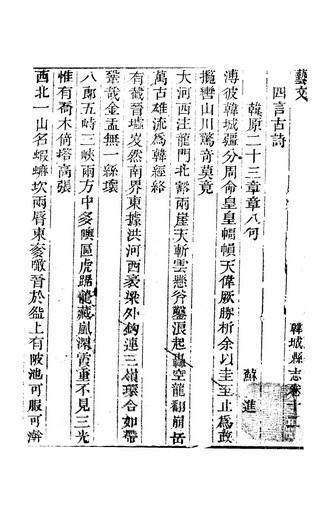 藝文
四言古詩
韓原二十三章章八句
蘇進
溥彼韓城疆分周命皇皇幅幀天偉厥勝析余以圭至止為政
攬轡山川驚奇莫竟
大河西注龍門北 兩崖天斬雲懸斧鑿浪起轟空龍翻崩岳
萬古雄流為韓經絡
有巀晉墟岌然南界東據洪河西裹梁外鈎連三嶺環合如帶
鞏哉金盂無一絲壞
八鄣五峙三峽兩方中多隩區虎踞龍藏嵐深霞重不見三光
惟有喬木倚塔高張
西北一山名蝦蟆坎兩脣東夌瞰晉於監上有陂池可服可澣
韓城縣志卷十